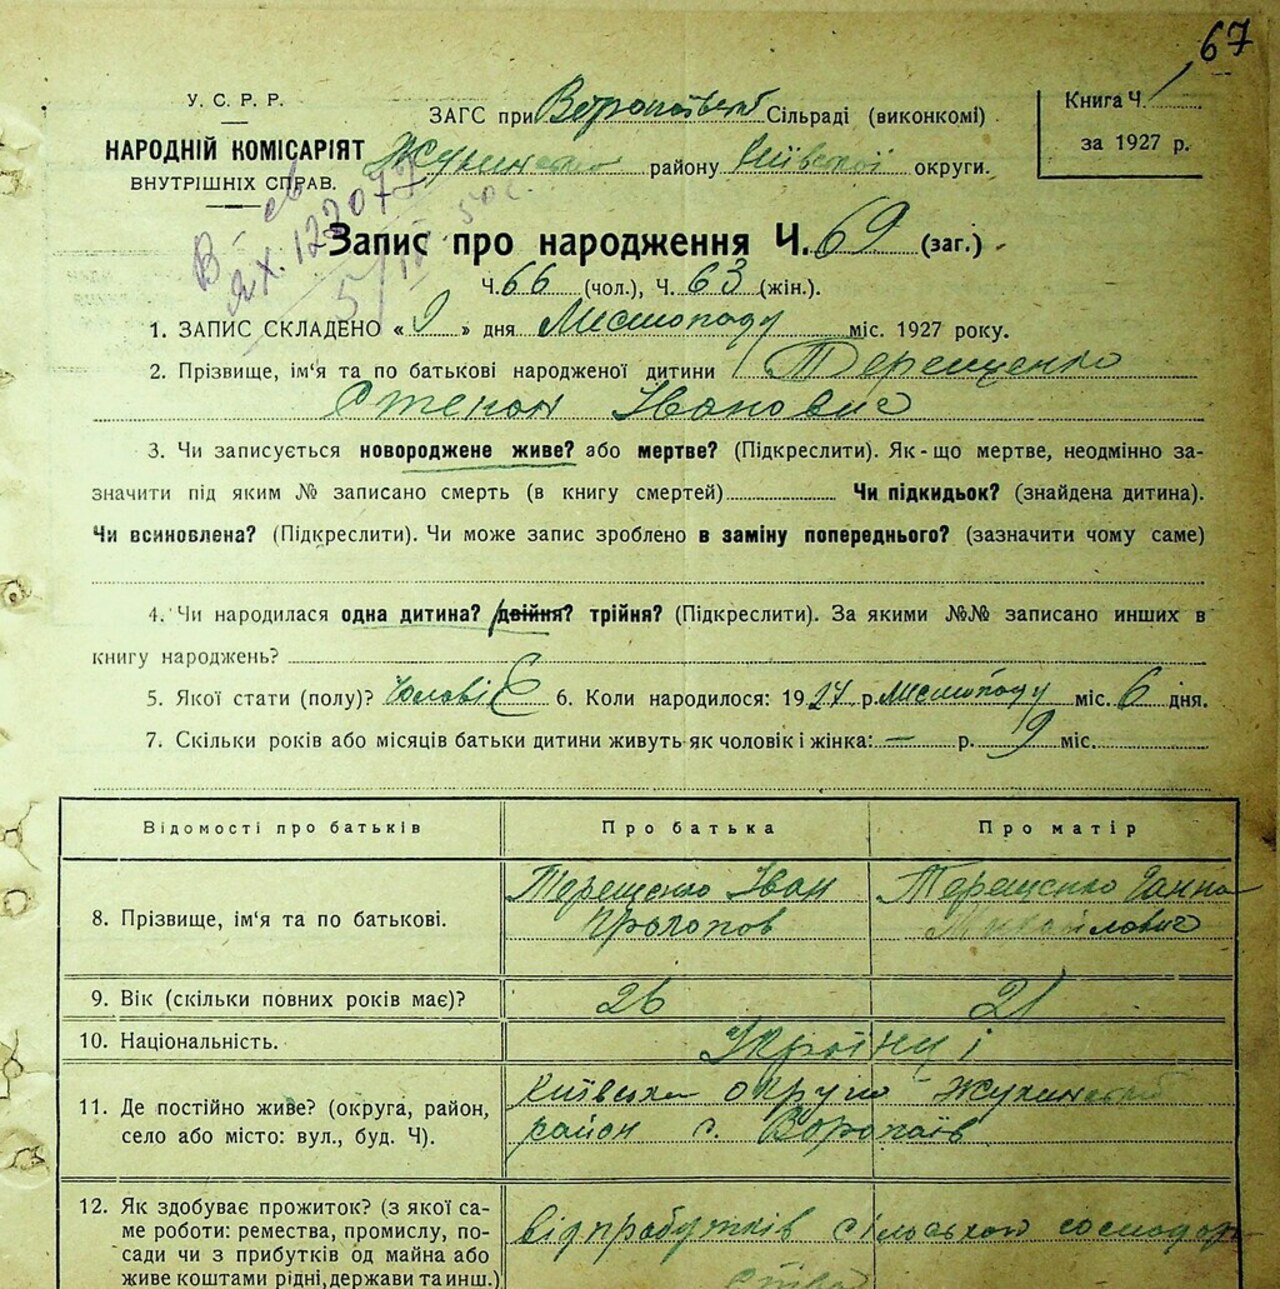 67
У. С. Р. Р.
НАРОДНІЙ КОМІСАРІЯТ
ВНУТРІШНІХ СПРАВ.
ЗАГС при Сільраді (виконкомі)
району Київської округи.
Книга Ч. 1
за 1927 р.
Запис про народження Ч. 69 (заг.)
Ч. 66 (чол.), Ч. 63 (жін.).
1. ЗАПИС СКЛАДЕНО « 9 » дня Листопаду міс. 1927 року.
2. Прізвище, ім‘я та по батькові народженої дитини Терещенко
Степан Іванович
3. Чи записується новороджене живе? або мертве? (Підкреслити). Як-що мертве, неодмінно за-
значити під яким № записано смерть (в книгу смертей) Чи підкидьок? (знайдена дитина).
Чи всиновлена? (Підкреслити). Чи може запис зроблено в заміну попереднього? (зазначити чому саме)
4. Чи народилася одна дитина? двійня? трійня? (Підкреслити). За якими №№ записано инших в
книгу народжень?
5. Якої стати (полу)? 6. Коли народилося: 1927 р. Листопаду міс. 6 дня.
7. Скільки років або місяців батьки дитини живуть як чоловік і жінка: — р. 9 міс.
Відомості про батьків Про батька Про матір
8. Прізвище, ім‘я та по батькові.
Терещенко Іван
Терещенко Ганна
9. Вік (скільки повних років має)? 26 21
10. Національність. Українці
11. Де постійно живе? (округа, район,
село або місто: вул., буд. Ч).
Київська округа
район с. Воропаїв
12. Як здобуває прожиток? (з якої са-
ме роботи: ремества, промислу, по-
сади чи з прибутків од майна або
живе коштами рідні, держави та инш.)
від прибутків сільського господар
ства